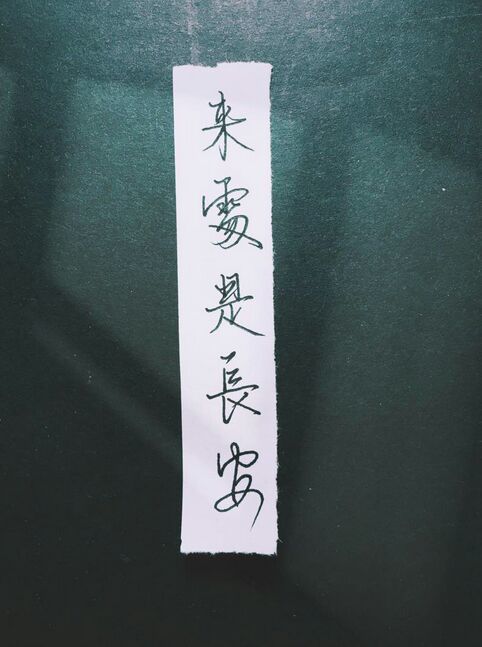 来處是長安